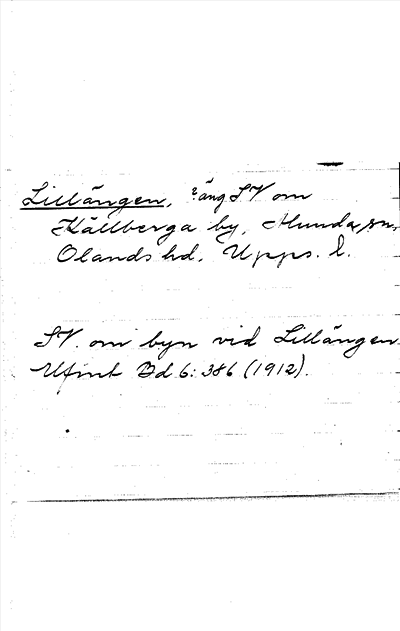 Lillängen, ?äng SV om
Källberga by, Munda sn,
Olands hd, Upps. l.
SV. om byn vid Lillängen.
Ufmt Bd 6: 386 (1912).